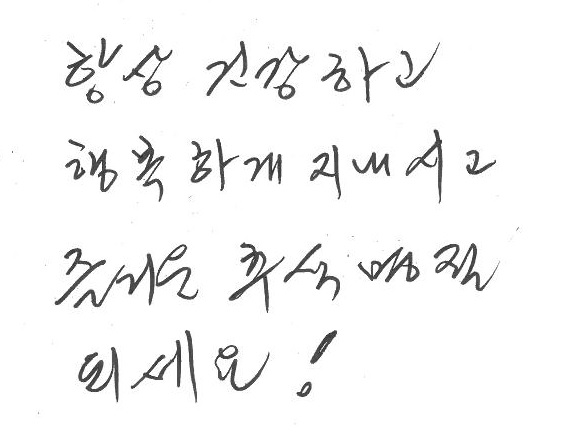 항상 건강하고
행복하게 지내시고
즐거운 추석 명절
되세요!